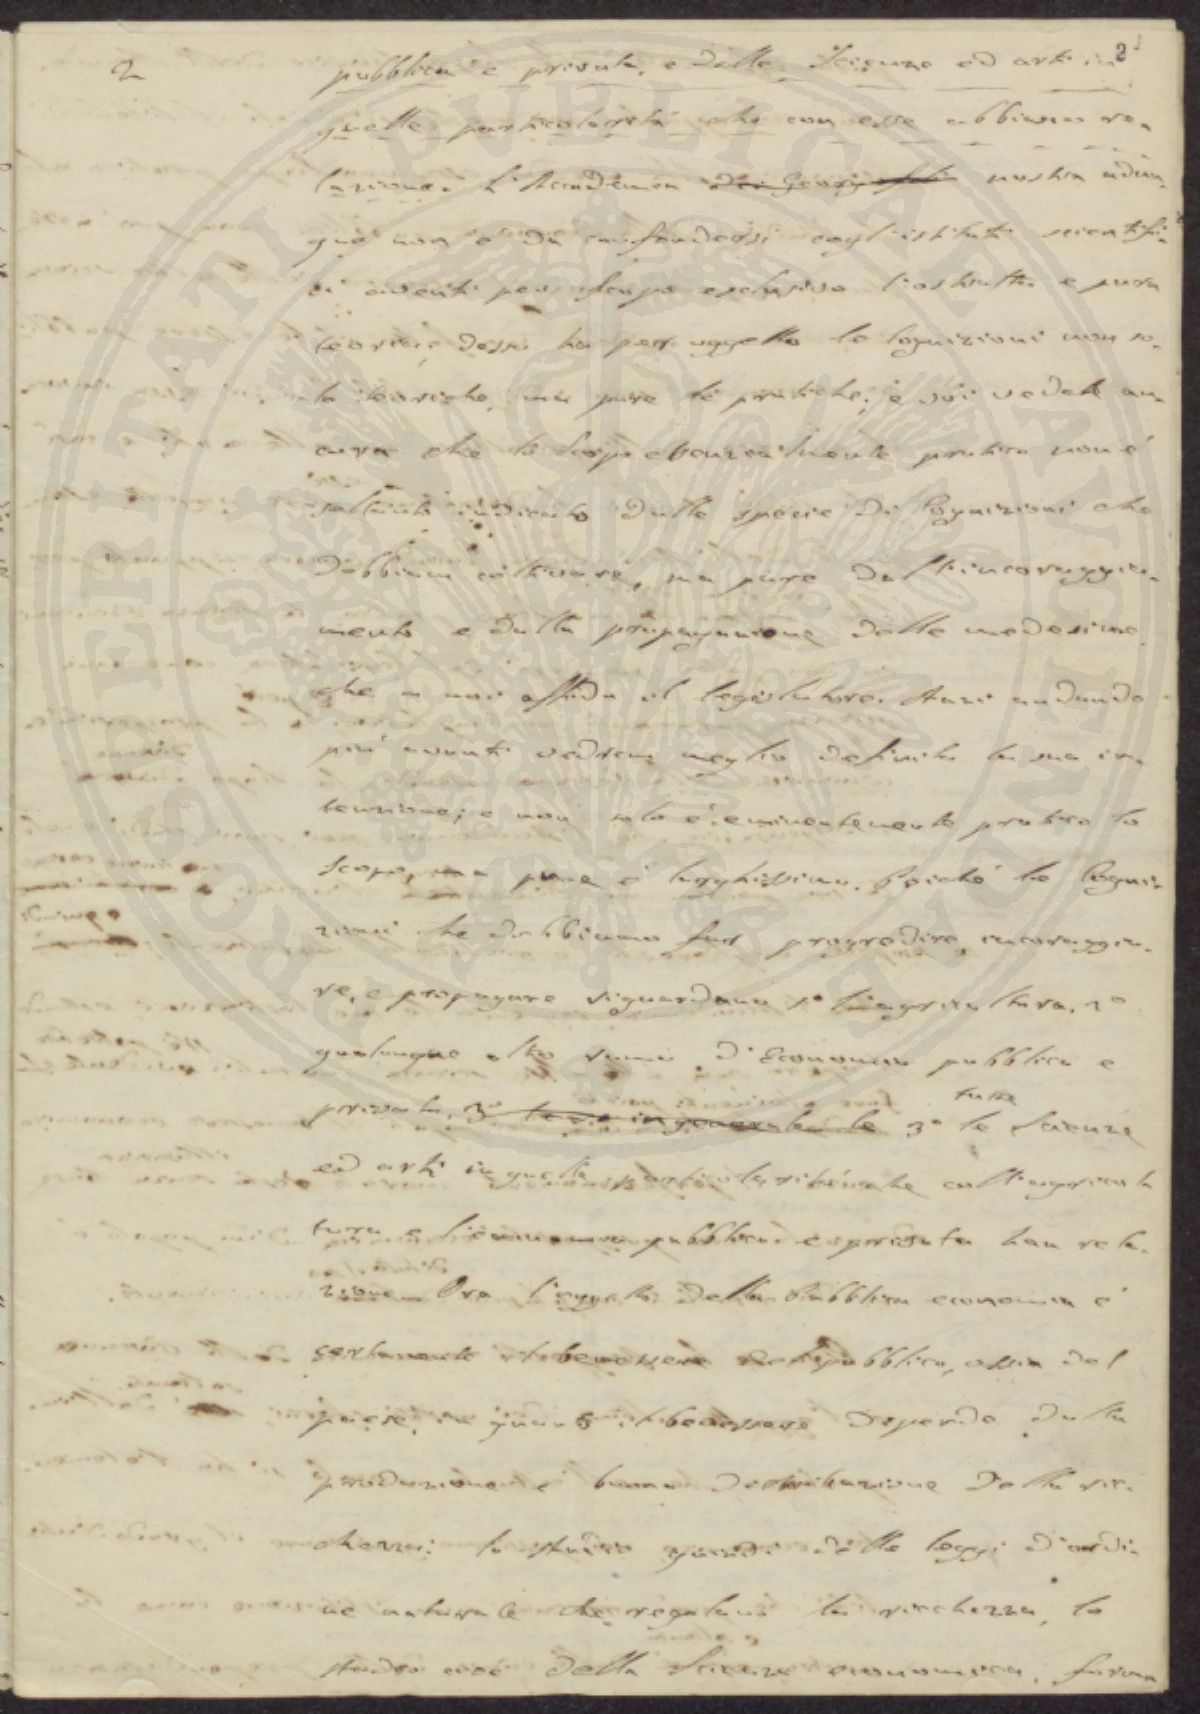 2
2
pubblica e privata, e delle Scienze ed arti in
quelle particolarità che con esse abbiano re-
lazione. L'Accademia dei Georgofili nostra adun-
que non è da confondersi cogl'istituti scientifi-
ci aventi per scopo esclusivo l'astratta e pura
teoria; dessa ha per oggetto le cognizioni non so-
lo teoriche, ma pure le pratiche; e voi vedete an-
cora che lo scopo essenzialmente pratico non è
soltanto indicato dalle specie di Cognizioni che
dobbiam coltivare, ma pure dall'incoraggia-
mento e dalla propagazione delle medesime
che a noi affida il legislatore. Anzi andando
più avanti vedrem meglio definita la sua in-
tenzione; e non solo è eminentemente pratico lo
Scopo, ma pure è larghissimo. Poiché le Cogni-
zioni che dobbiamo far progredire, incoraggia-
re, e propagare riguardano 1º l'agricoltura, 2º
qualunque altro ramo d'Economia pubblica e
privata, 3º in generale le 3º tutte le Scienze
ed arti in quelle particolarità che coll'agricol
tura e l'economia pubblica e privata han rela-
zione. Ora l'oggetto della Pubblica economia è
certamente il benessere del pubblico, ossia del
paese, in quanto il benessere dipende dalla
produzione e buona distribuzione della ric-
chezza: lo studio quindi delle leggi d'ordi-
ne naturale che regolano la ricchezza, lo
studio cioè della Scienza economica, forma
PROSPERITATI PUBLICAE AUGENDAE